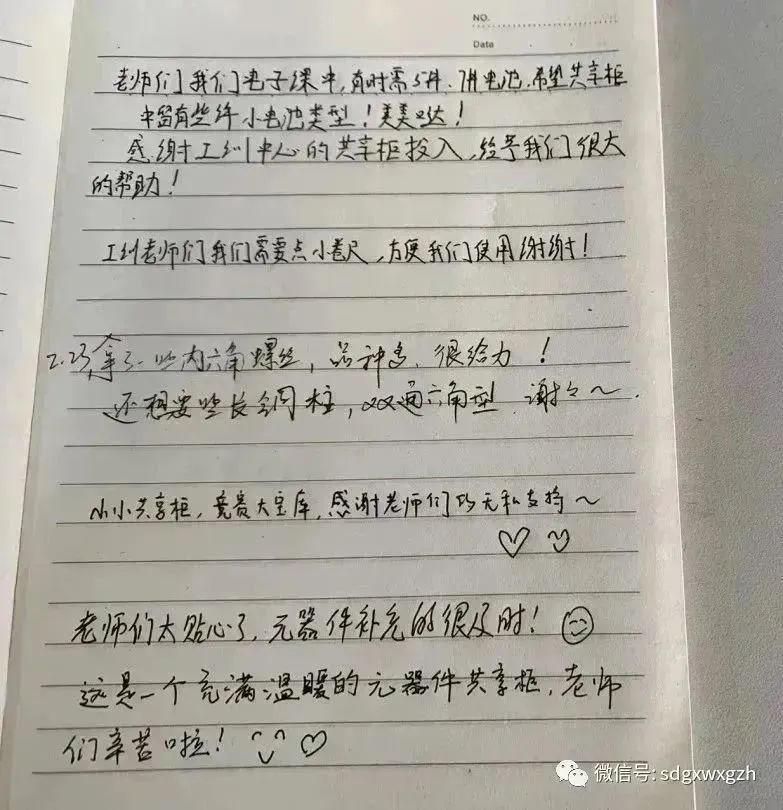 NO.
Date
老师们我们电子课中,有时需5号、7号电池.希望共享柜
中留有些纤小电池类型!美美哒!
感谢工训中心的共享柜投入,给予我们很大
的帮助!
工训老师们我们需要点小卷尺,方便我们使用谢谢!
2.25拿了一些内六角螺丝,品种多,很给力!
还想要些长铜柱,双通六角型 谢々~.
小小共享柜,竞赛大宝库,感谢老师们的无私支持~
老师们太贴心了,元器件补充的很及时!
这是一个充满温暖的元器件共享柜,老师
们辛苦啦!
微信号: sdgxwxgzh